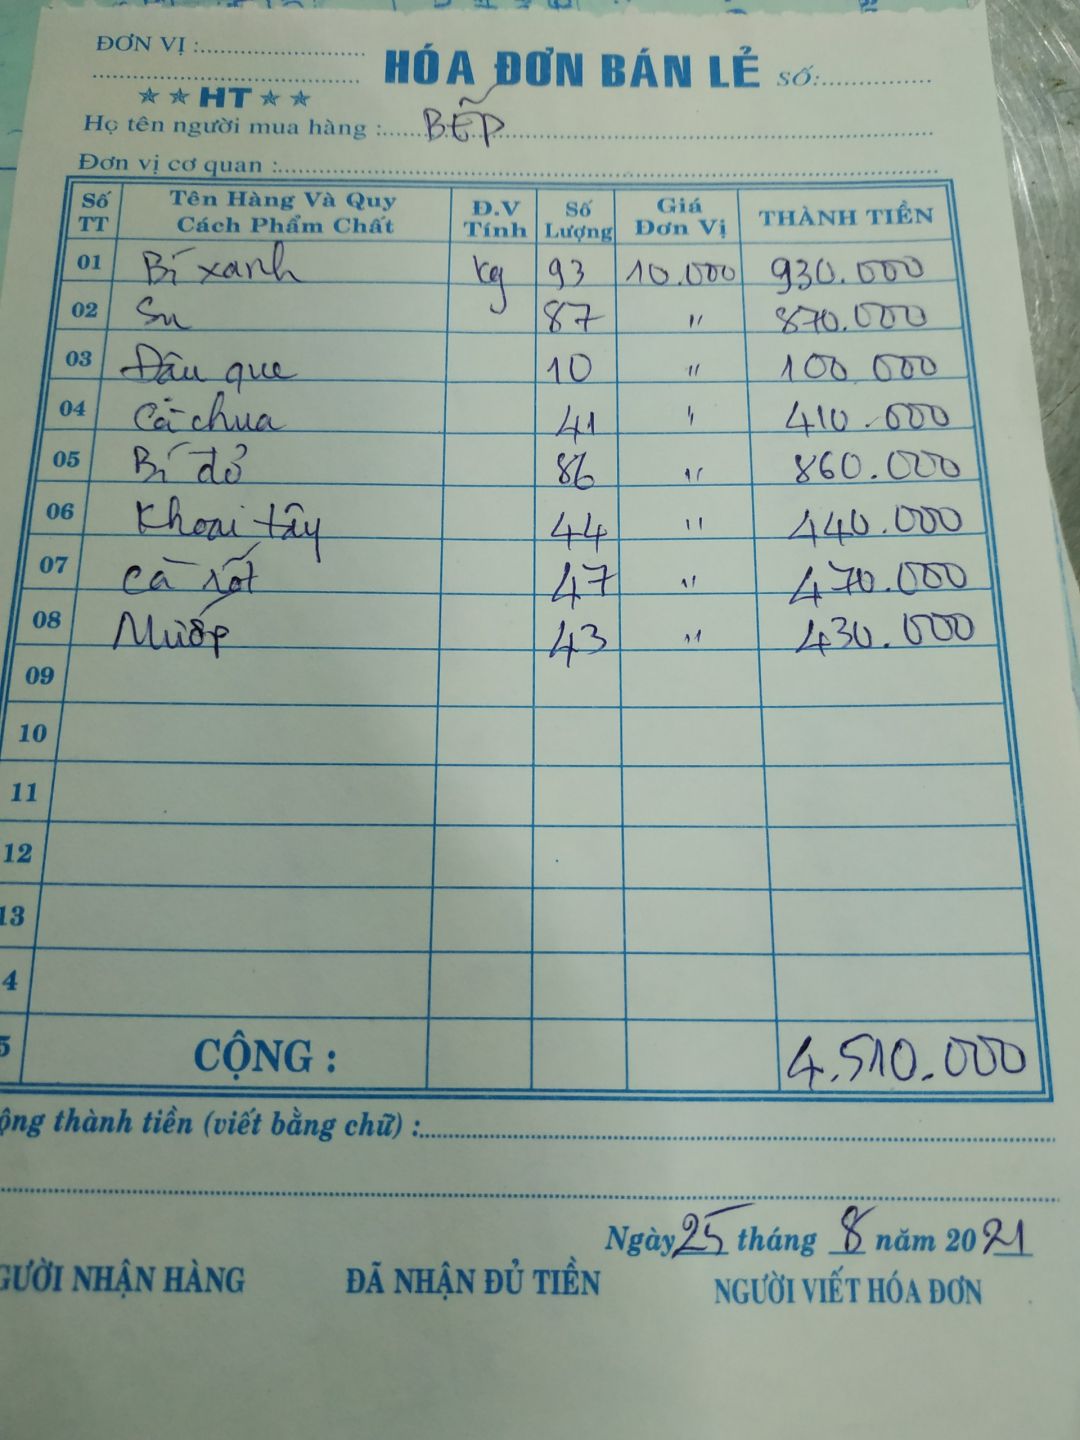 ĐƠN VỊ :
HÓA ĐƠN BÁN LẺ SỐ:
★ ★ HT ★ ★
Họ tên người mua hàng : BẾP
Đơn vị cơ quan :
Số TT Tên Hàng Và Quy Cách Phẩm Chất Đ.V Tính Số Lượng Giá Đơn Vị THÀNH TIỀN
01 Bí xanh kg 93 10.000 930.000
02 Su 87 " 870.000
03 Đậu que 10 " 100.000
04 Cà chua 41 " 410.000
05 Bí đỏ 86 " 860.000
06 Khoai tây 44 " 440.000
07 Cà rốt 47 " 470.000
08 Mướp 43 " 430.000
09
10
11
12
13
4
5 CỘNG : 4.510.000
ộng thành tiền (viết bằng chữ) :
Ngày 25 tháng 8 năm 2021
GƯỜI NHẬN HÀNG ĐÃ NHẬN ĐỦ TIỀN NGƯỜI VIẾT HÓA ĐƠN